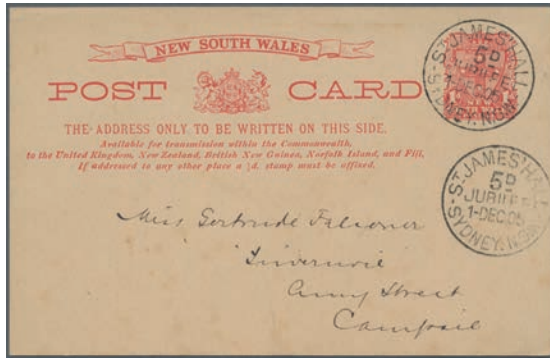 NEW SOUTH WALES
POST CARD
THE ADDRESS ONLY TO BE WRITTEN ON THIS SIDE.
Available for transmission within the Commonwealth,
to the United Kingdom, New Zealand, British New Guinea, Norfolk Island, and Fiji,
If addressed to any other place a ½d. stamp must be affixed.
ST JAMES' HALL
5D
JUBILEE
1-DEC.05
SYDNEY. N.S.W.
ST JAMES' HALL
5D
JUBILEE
1-DEC.05
SYDNEY. N.S.W.
Miss Gertrude Falconer
Street
Campsie